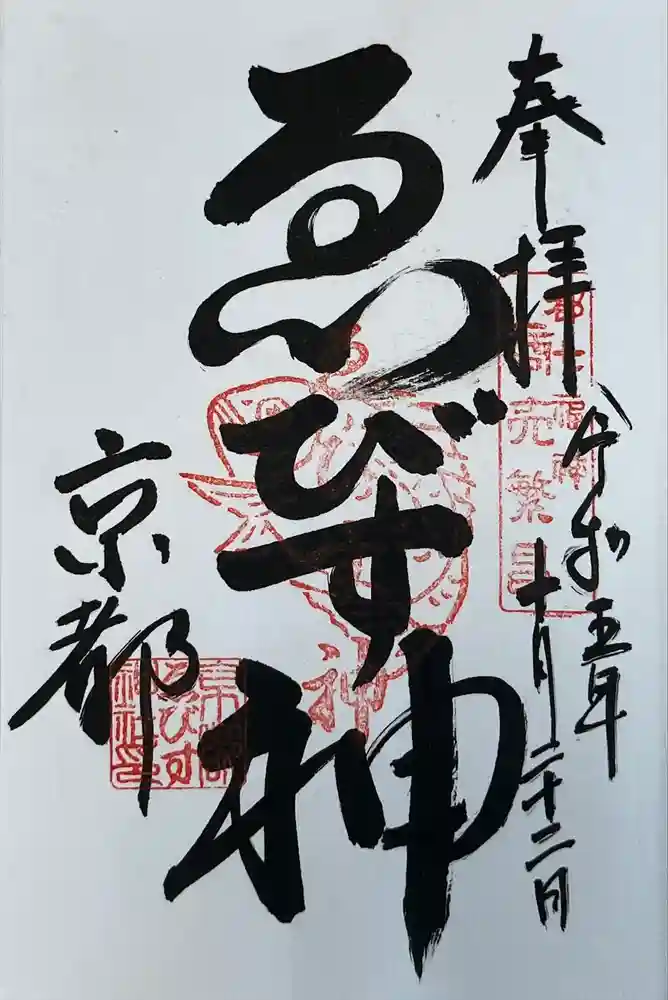 奉拝
令和五年
十月二十二日
都七福神
商売繁昌
ゑびす神
京都
京都
ゑびす
神社印